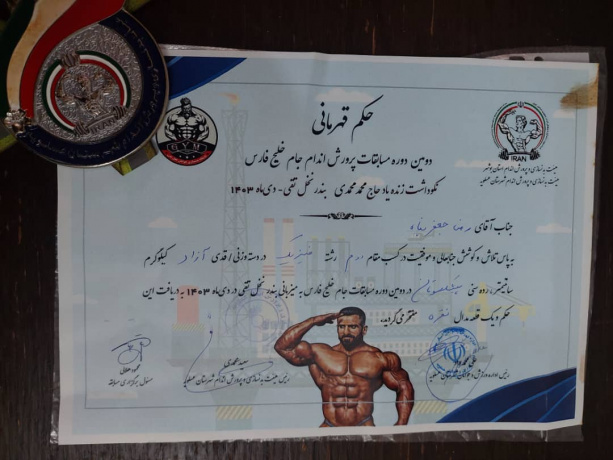 حکم قهرمانی
دومین دوره مسابقات پرورش اندام جام خلیج فارس
نکوداشت زنده یاد حاج محمد محمدی بندر نخل تقی - دی ماه ۱۴۰۳
GYM
IRAN
هیئت بدنسازی و پرورش اندام استان بوشهر
هیئت بدنسازی و پرورش اندام شهرستان عسلویه
جناب آقای رضا
بپاس تلاش و کوشش جنابعالی و موفقیت در کسب مقام دوم رشته در دسته وزنی / قدی آزاد کیلوگرم
سانتیمتر، رده سنی پیشکسوتان در دومین دوره مسابقات جام خلیج فارس به میزبانی بندر نخل تقی در دی ماه ۱۴۰۳ به دریافت این
حکم و یک قطعه مدال نقره مفتخر می گردید.
مسئول برگزاری مسابقه
رئیس هیئت بدنسازی و پرورش اندام شهرستان عسلویه
رئیس اداره ورزش و جوانان شهرستان عسلویه